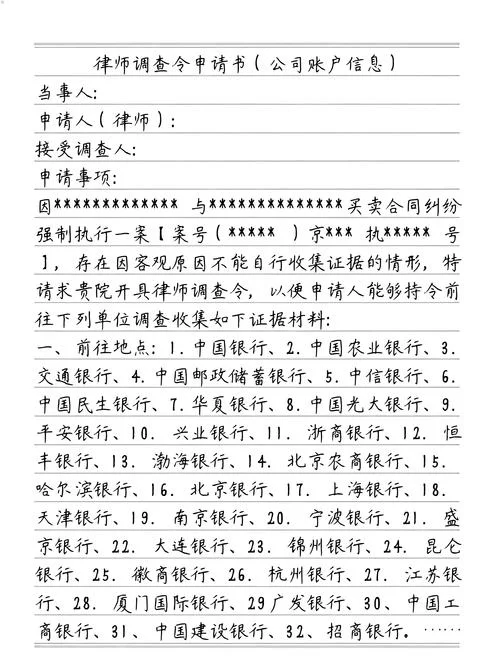 律师调查令申请书（公司账户信息）
当事人:
申请人（律师）:
接受调查人:
申请事项:
因************* 与**************买卖合同纠纷
强制执行一案【案号（***** ）京*** 执***** 号
】，存在因客观原因不能自行收集证据的情形，特
请求贵院开具律师调查令，以便申请人能够持令前
往下列单位调查收集如下证据材料:
一、前往地点：1.中国银行、2.中国农业银行、3.
交通银行、4.中国邮政储蓄银行、5.中信银行、6.
中国民生银行、7.华夏银行、8.中国光大银行、9.
平安银行、10. 兴业银行、11. 浙商银行、12. 恒
丰银行、13. 渤海银行、14. 北京农商银行、15.
哈尔滨银行、16. 北京银行、17. 上海银行、18.
天津银行、19. 南京银行、20. 宁波银行、21. 盛
京银行、22. 大连银行、23. 锦州银行、24. 昆仑
银行、25. 徽商银行、26. 杭州银行、27. 江苏银
行、28. 厦门国际银行、29广发银行、30、中国工
商银行、31、中国建设银行、32、招商银行。……